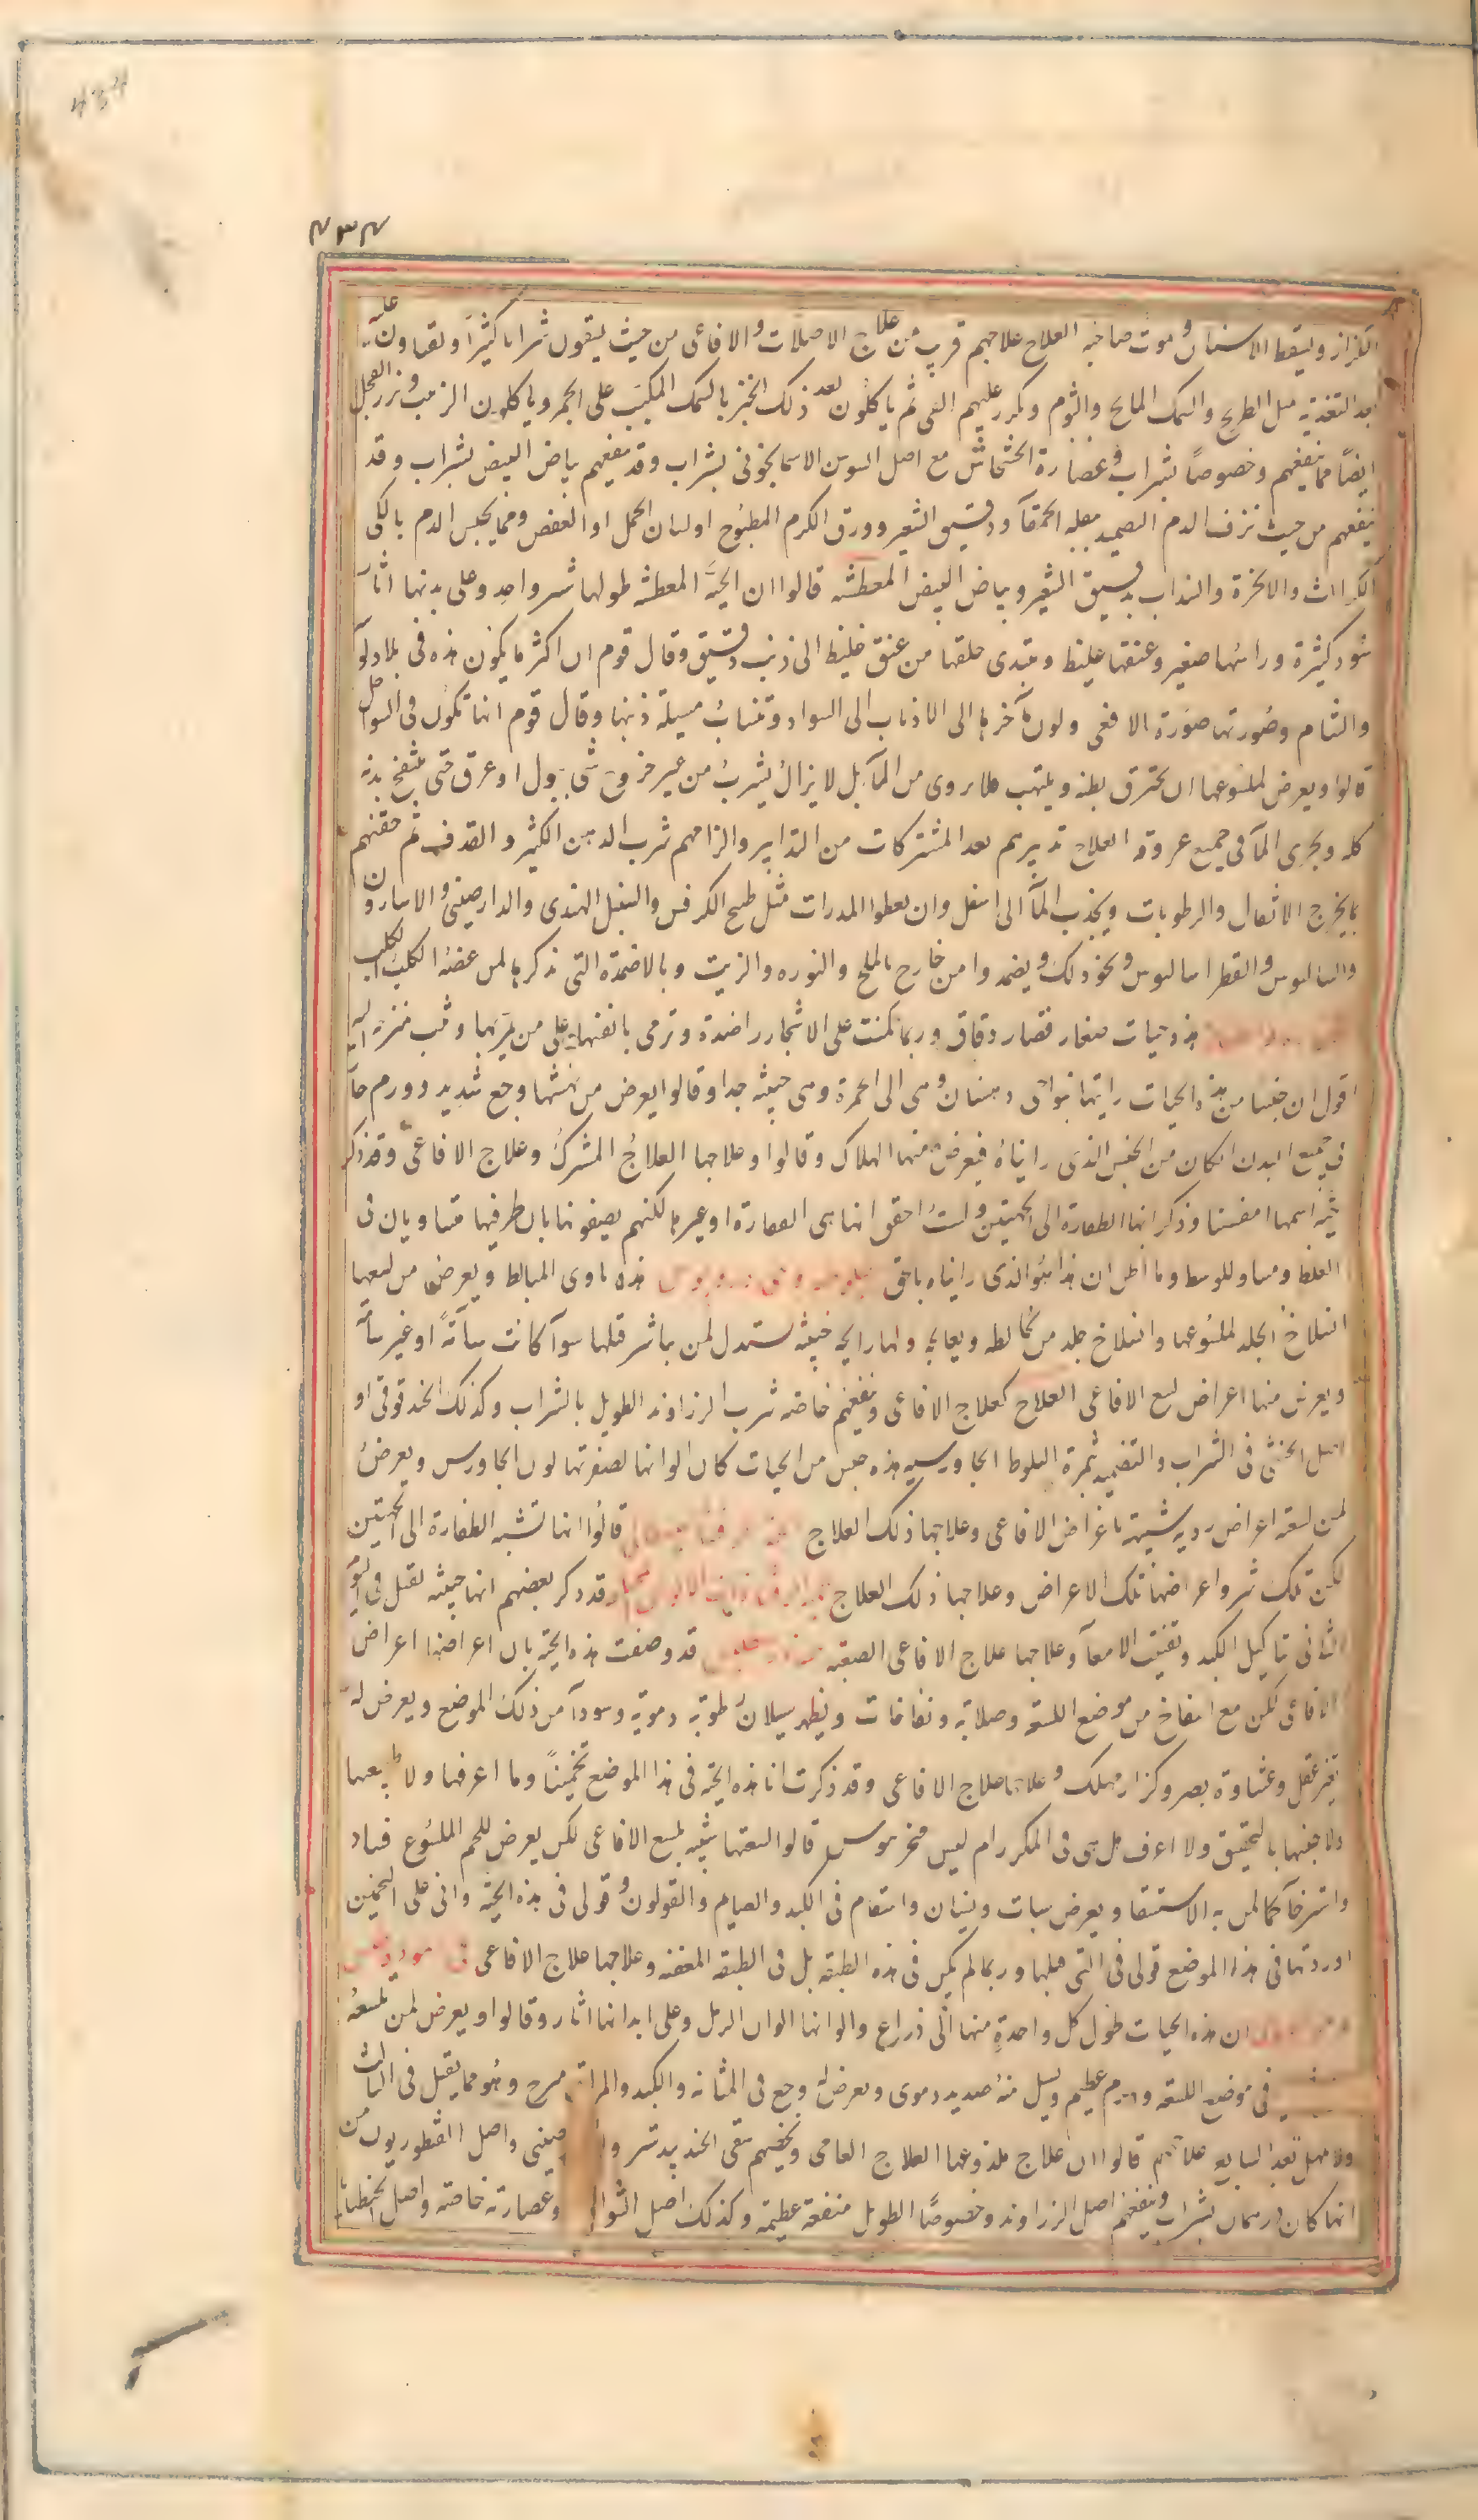 ۴۳۴
۴۳۴
الكزاز ويسقط الاسنان و موت صاحبه العلاج علاجهم قريب من علاج الاصلات والافاعى من حيث يسقون شرابا كثيرا و تعاون عليه
بعد التغذية مثل الطريخ والسمك المالح والثوم ويكرر عليهم القى ثم ياكلون بعد ذلك الخبز بالسمك المكبب على الجمر وياكلون الزبيب وبزر الفجل
ايضاً مما ينفعهم وخصوصاً بشراب و عضارة الخشخاش مع اصل السوسن الاسمانجونى بشراب وقد ينفعهم بياض البيض بشراب وقد
ينفعهم من حيث نزف الدم التضميد ببقلة الحمقآ ودقيق الشعير وورق الكرم المطبوخ او لسان الحمل او العفص ومما يحبس الدم بالكى
الكراث والانجرة والسذاب بدقيق الشعير وبياض البيض المعطشه قالوا ان الحية المعطشه طولها شبر واحد وعلى بدنها اثار
سود كثيرة وراسها صغير وعنقها غليظ ويبتدى خلقها من عنق غليظ الى ذنب دقيق وقال قوم ان اكثر ما يكون هذه فى بلاد لوبيا
والشام وصورتها صورة الافعى ولون مآخرها الى الاذناب الى السواد وتنساب مسبلة ذنبها وقال قوم انها تكون فى السواحل
قالوا ويعرض لملسوعها ان يحترق بطنه ويلتهب فلا يروى من المآ بل لا يزال يشرب من غير خروج شى ببول او عرق حتى ينتفخ بدنه
كله ويجرى المآ فى جميع عروقه العلاج تدبيرهم بعد المشتركات من التدابير والزامهم شرب الدهن الكثير والقذف ثم حقنهم
بما يخرج الاثفال والرطوبات ويجذب المآ الى اسفل وان يعطوا المدرات مثل طبيخ الكرفس والسنبل الهندى والدارصينى والاسارون
والساليوس والفطراساليوس ونحو ذلك ويضمدوا من خارج بالملح والنوره والزيت وبالاضمدة التى نذكرها لمن عضه الكلب الكلب
هذه حيات صغار قصار دقاق وربما كمنت على الاشجار راصدة وترمى بانفسها على من يمر بها وتثب منزرقه اليه
اقول ان جنسا من هذه الحيات رايتها بنواحى دهستان وهى الى الحمرة وهى خبيثه جدا وقالوا يعرض من نهشها وجع شديد وورم حار
فى جميع البدن ان كان من الجنس الذى رايناه فيعرض منها الهلاك وقالوا وعلاجها العلاج المشترك وعلاج الافاعى وقد ذكر
حية اسمها امفسنا وذكر انها الطفارة الى الجهتين ولست احقق انها هى الصفارة او غيرها لكنهم يصفونها بان طرفيها متساويان فى
الغلظ ومساو للوسط وما اظن ان هذا هو الذى رايناه باحق هذه تاوى المبالط ويعرض من لسعها
انسلاخ الجلد لملسوعها وانسلاخ جلد من يخالطه ويعالجه ولها رايحة خبيثه ستدل لمن باشر قتلها سوآ كانت سامةً او غير سامة
ويعرض منها اعراض لسع الافاعى العلاج كعلاج الافاعى وينفعهم خاصه شرب الزراوند الطويل بالشراب وكذلك الحندقوقى او
اصل الخنثى فى الشراب والتضميد بثمرة البلوط الجاورسيه هذه جنس من الحيات كان الوانها لصفرتها لون الجاورس ويعرض
لمن لسعه اعراض رديه شبيهة باعراض الافاعى وعلاجها ذلك العلاج قالوا انها تشبه الطفارة الى الجهتين
لكن تلك شر واعراضها تلك الاعراض وعلاجها ذلك العلاج قد ذكر بعضهم انها خبيثه تقتل فى اليوم
الثانى بتاكيل الكبد وتفتيت الامعآ وعلاجها علاج الافاعى الصعبة قد وصفت هذه الحية بان اعراضها اعراض
الافاعى لكن مع انتفاخ من موضع اللسعة وصلابة ونفاخات ويظهر سيلان رطوبة دموية وسودآ من ذلك الموضع ويعرض له
تغير عقل وغشاوة بصر وكزاز مهلك وعلاجها علاج الافاعى وقد ذكرت انا هذه الحية فى هذا الموضع تخميناً وما اعرفها ولا طبعها
ولا جنسها بالتحقيق ولا اعرف هل هى فى المكرر ام ليس قالوا لسعتها شبيه بلسع الافاعى لكن يعرض للحم الملسوع فساد
واسترخآ كما لمن به الاستسقا ويعرض سبات ونسيان واسقام فى الكبد والصيام والقولون و قولى فى هذه الحية وانى على التخمين
اوردتها فى هذا الموضع قولى فى التى قبلها وربما لم يكن فى هذه الطبقه بل فى الطبقه المعفنه وعلاجها علاج الافاعى
ان هذه الحيات طول كل واحدةٍ منها الى ذراع والوانها الوان الرمل وعلى ابدانها اثار وقالوا ويعرض لمن تلسعه
فى موضع اللسعة وورم عظيم ويسل منه صديد دموى ويعرض له وجع فى المثانه والكبد والمراق مبرح وهو مما يقتل فى الثالث
ولا يمهل بعد السابع علاجهم قالوا ان علاج ملذوعها العلاج العامى ويخصهم سقى الجندبيدستر و صينى واصل القنطوريون من
ايها كان درهمان بشراب وينفعهم اصل الزراوند وخصوصًا الطويل منفعة عظيمة وكذلك اصل وعصارته خاصته واصل الجنطيانا